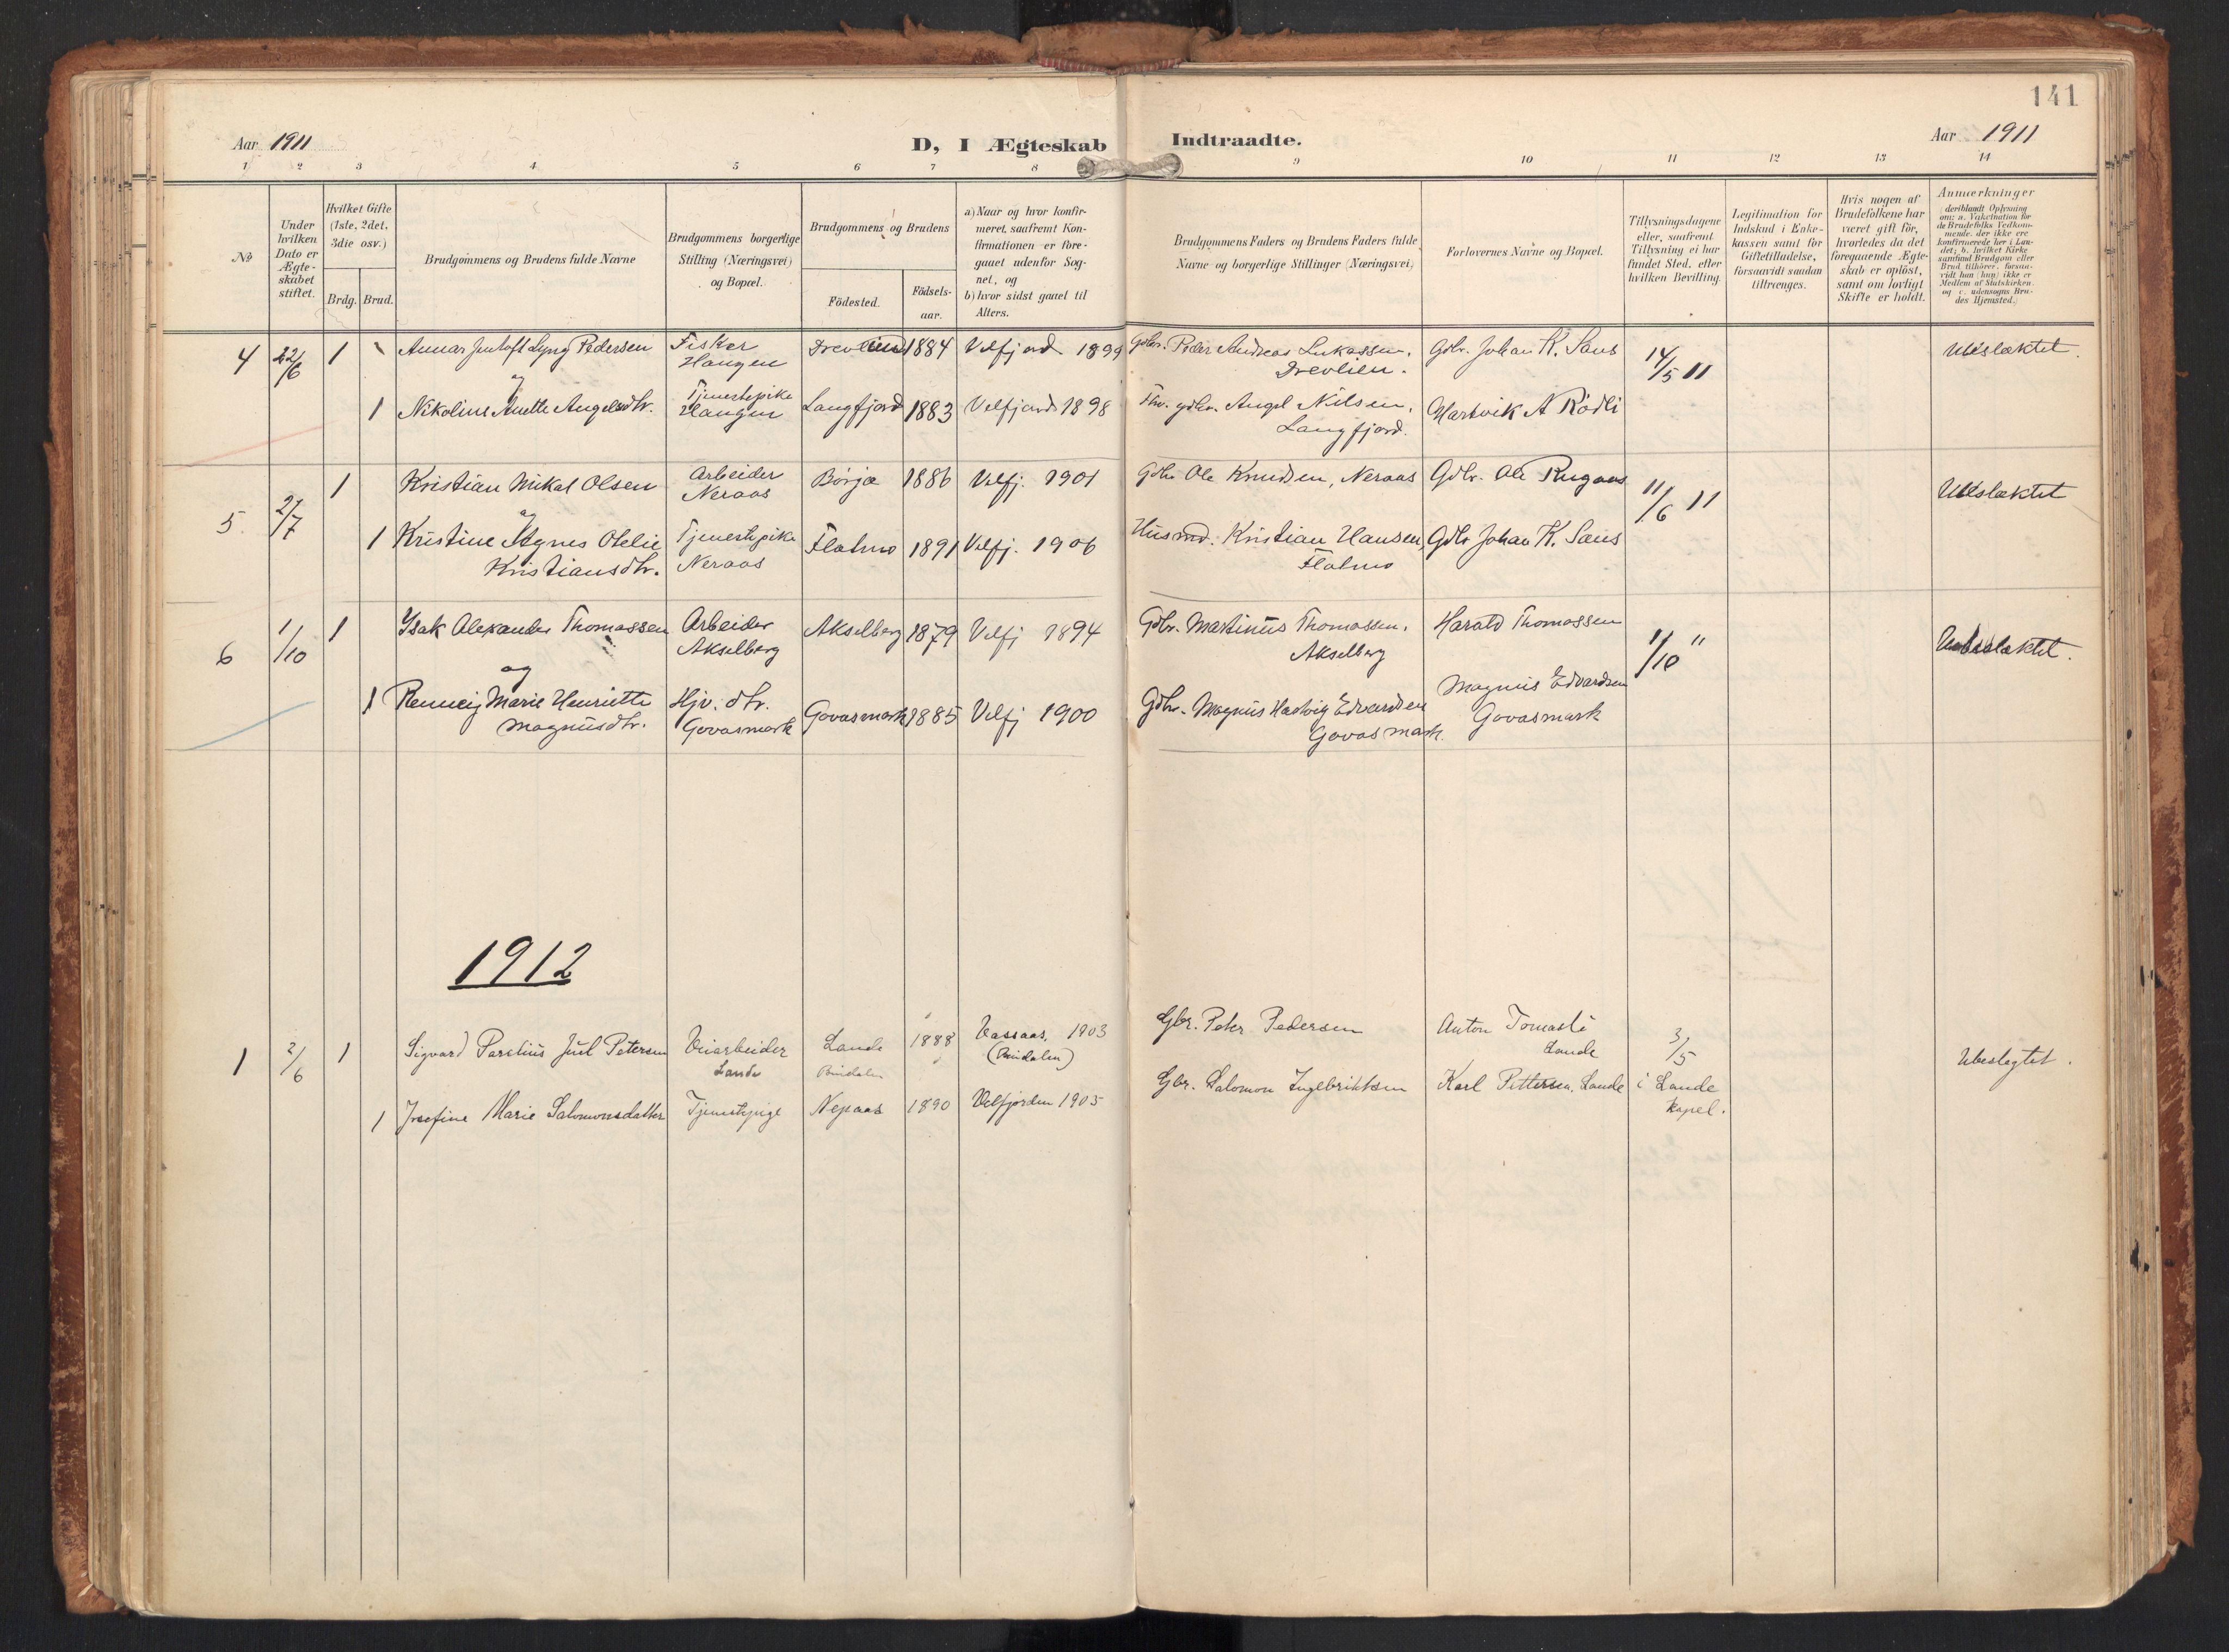 141
Aar 1911
D, I Ægteskab Indtraadte.
Aar 1911
1 2 3 4 5 6 7 8 9 10 11 12 13 14
No
Under hvilken Dato er Ægteskabet stiftet.
Hvilket Gifte (1ste, 2det, 3die osv.)
Brdg. Brud.
Brudgommens og Brudens fulde Navne
Brudgommens borgerlige Stilling (Næringsvei) og Bopæl.
Brudgommens og Brudens
Födested.
Födsels-aar.
a) Naar og hvor konfirmeret, saafremt Konfirmationen er foregaaet udenfor Sognet, og
b) hvor sidst gaaet til Alters.
Brudgommens Faders og Brudens Faders fulde Navne og borgerlige Stillinger (Næringsvei)
Forlovernes Navne og Bopæl.
Tillysningsdagene eller, saafremt Tillysning ei har fundet Sted, efter hvilken Bevilling.
Legitimation for Indskud i Enkekassen samt for Giftetilladelse, forsaavidt saadan tiltrænges.
Hvis nogen af Brudefolkene har været gift för, hvorledes da det foregaaende Ægteskab er oplöst, samt om lovligt Skifte er holdt.
Anmærkninger
(deriblandt Oplysning om: a. Vakcination for de Brudefolks Vedkommende, der ikke ere konfirmerede her i Landet; b. hvilket Kirkesamfund Brudgom eller Brud tilhörer, forsaavidt han (hun) ikke er Medlem af Statskirken, og c. udensogns Brudes Hjemsted.)
4 22/6 1 Lyng Pedersen Fisker Haugen 1884 Velfjord 1899 Gdbr. Peder Andreas Lukassen, Drevlien. Gdbr. Johan K. Saus 14/5 11 Ubeslæktet.
og
1 Nikoline Anette Angelsdtr. Tjenestepike Haugen Langfjord 1883 Velfjord 1898 gdbr. Angel Nilsen, Langfjord. Hartvik A Rödli
5. 2/7 1 Kristian Mikal Olsen Arbeider Neraas Börja 1886 Velfj. 1901 Gdbr Ole Knudsen, Neraas Gdbr. Ole Rugaas 11/6 11 Ubeslæktet
og
1 Kristine Agnes Otelie Kristiansdtr. Tjenestepike Neraas Flatmo 1891 Velfj. 1906 Husmd. Kristian Hansen, Flatmo Gdbr Johan K. Saus
6 1/10 1 Isak Alexander Thomassen Arbeider Akselberg Akselberg 1879 Velfj 1894 Gdbr. Martinus Thomassen, Akselberg Harald Thomassen 1/10 " Ubeslæktet.
og
1 Renneij Marie Henriette Magnusdtr. Hjv. dtr. Govasmark Govasmark 1885 Velfj 1900 Gdbr. Magnus Hartvig Edvardsen Govasmark. Magnus Edvardsen Govasmark
1912
1 2/6 1 Sigvard Parelius Juul Petersen Veiarbeider Lande Lande Bindalen 1888 Vassaas, 1903 (Bindalen) Gbr. Peter Pedersen Anton Tomasli Lande 3/5 i Lande kapel. Ubeslegtet.
1 Josefine Marie Salomonsdatter Tjenestepige Nepaas 1890 Velfjorden 1905 Gbr. Salomon Ingebriktsen Karl Pettersen, Lande